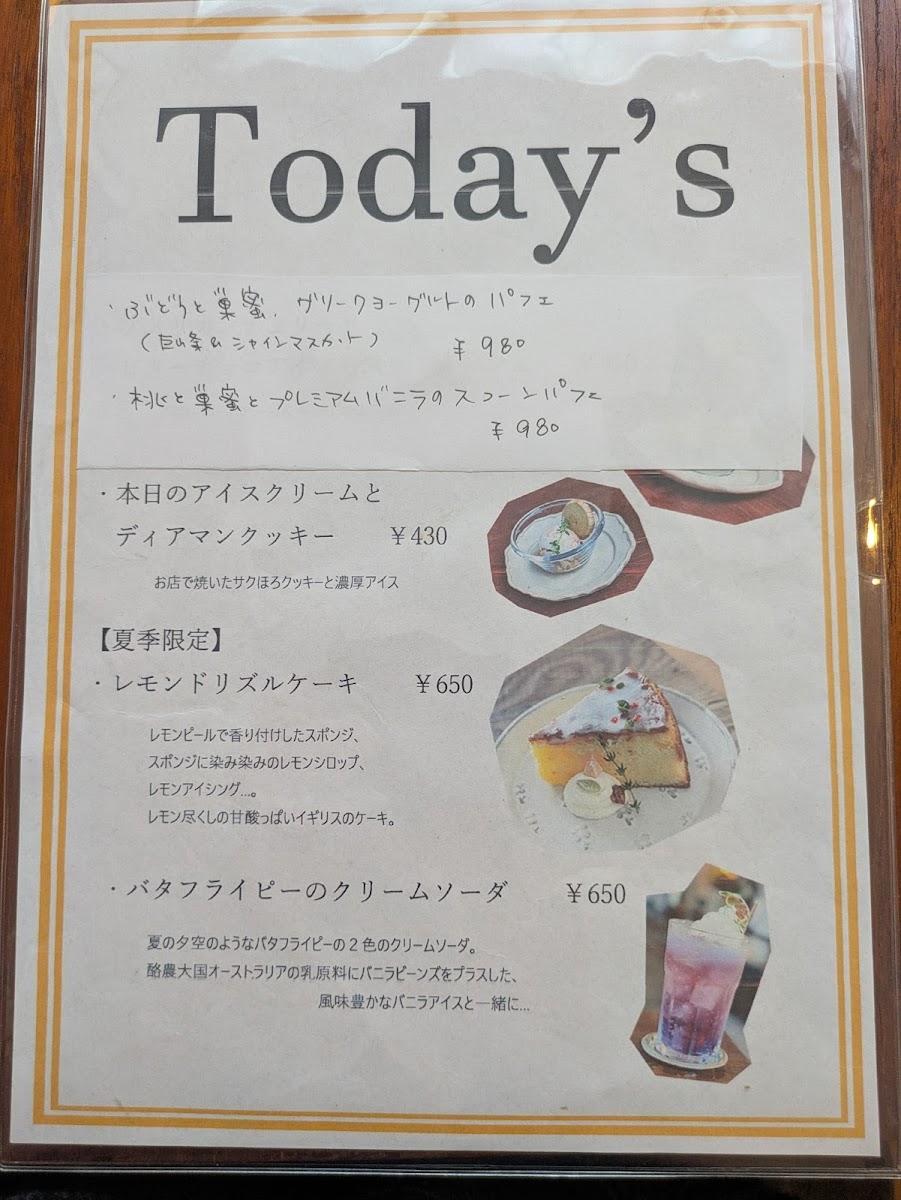 Today's
・ぶどうと巣蜜、グリークヨーグルトのパフェ
(巨峰&シャインマスカット) ¥980
・桃と巣蜜とプレミアムバニラのスコーンパフェ
¥980
・本日のアイスクリームと
ディアマンクッキー ¥430
お店で焼いたサクほろクッキーと濃厚アイス
【夏季限定】
・レモンドリズルケーキ ¥650
レモンピールで香り付けしたスポンジ、
スポンジに染み染みのレモンシロップ、
レモンアイシング...。
レモン尽くしの甘酸っぱいイギリスのケーキ。
・バタフライピーのクリームソーダ ¥650
夏の夕空のようなバタフライピーの2色のクリームソーダ。
酪農大国オーストラリアの乳原料にバニラビーンズをプラスした、
風味豊かなバニラアイスと一緒に...